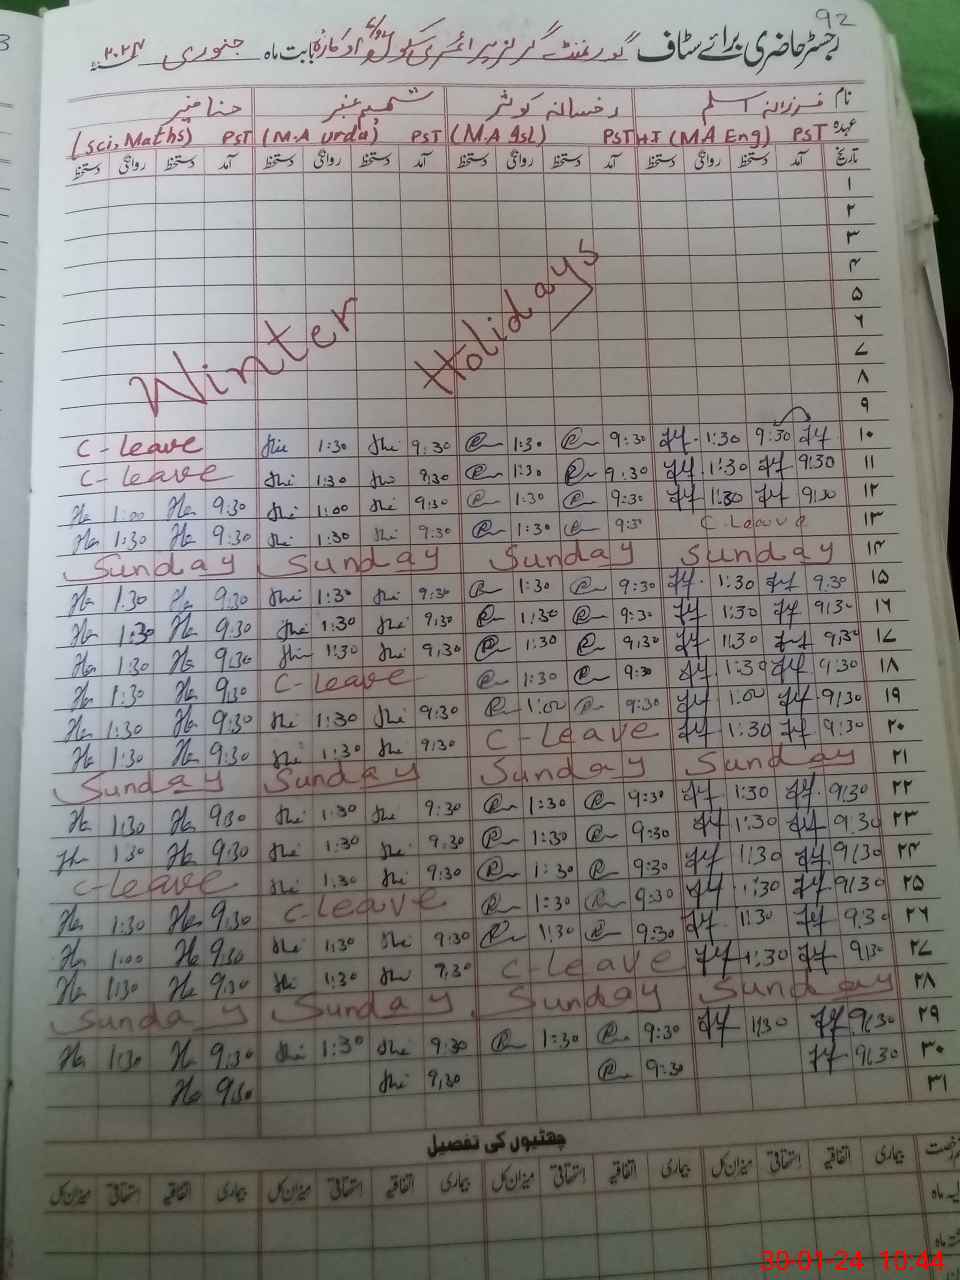 92
رجسٹر حاضری برائے سٹاف گورنمنٹ گرلز پرائمری سکول اوکاڑہ بابت ماہ جنوری ۲۰۲۴ء
نام فرزانہ اسلم رخسانہ کوثر شمیم عنبر حنا منیر
عہدہ PST (M.A Eng) PSTHI (M.A Isl) PST (M.A Urdu) PST (Sci, Maths)
تاریخ آمد دستخط روانگی دستخط آمد دستخط روانگی دستخط آمد دستخط روانگی دستخط آمد دستخط روانگی دستخط
۱
۲
۳
۴
۵
۶
۷
۸
۹
Winter Holidays
C-Leave 1:30 9:30 1:30 9:30 1:30 9:30 ۱۰
C-Leave 1:30 9:30 1:30 9:30 1:30 9:30 ۱۱
1:00 9:30 1:00 9:30 1:30 9:30 1:30 9:30 ۱۲
1:30 9:30 1:30 9:30 1:30 9:30 C-Leave ۱۳
Sunday Sunday Sunday Sunday ۱۴
1:30 9:30 1:30 9:30 1:30 9:30 1:30 9:30 ۱۵
1:30 9:30 1:30 9:30 1:30 9:30 1:30 9:30 ۱۶
1:30 9:30 1:30 9:30 1:30 9:30 1:30 9:30 ۱۷
1:30 9:30 C-Leave 1:30 9:30 1:30 9:30 ۱۸
1:30 9:30 1:30 9:30 1:00 9:30 1:00 9:30 ۱۹
1:30 9:30 1:30 9:30 C-Leave 1:30 9:30 ۲۰
Sunday Sunday Sunday Sunday ۲۱
1:30 9:30 1:30 9:30 1:30 9:30 1:30 9:30 ۲۲
1:30 9:30 1:30 9:30 1:30 9:30 1:30 9:30 ۲۳
C-Leave 1:30 9:30 1:30 9:30 1:30 9:30 ۲۴
1:30 9:30 C-Leave 1:30 9:30 1:30 9:30 ۲۵
1:00 9:30 1:30 9:30 1:30 9:30 1:30 9:30 ۲۶
1:30 9:30 1:30 9:30 C-Leave 1:30 9:30 ۲۷
Sunday Sunday Sunday Sunday ۲۸
1:30 9:30 1:30 9:30 1:30 9:30 1:30 9:30 ۲۹
9:30 9:30 9:30 9:30 ۳۰
۳۱
چھٹیوں کی تفصیل
بیماری اتفاقیہ استحقاقی میزان کل بیماری اتفاقیہ استحقاقی میزان کل بیماری اتفاقیہ استحقاقی میزان کل
30-01-24 10:44